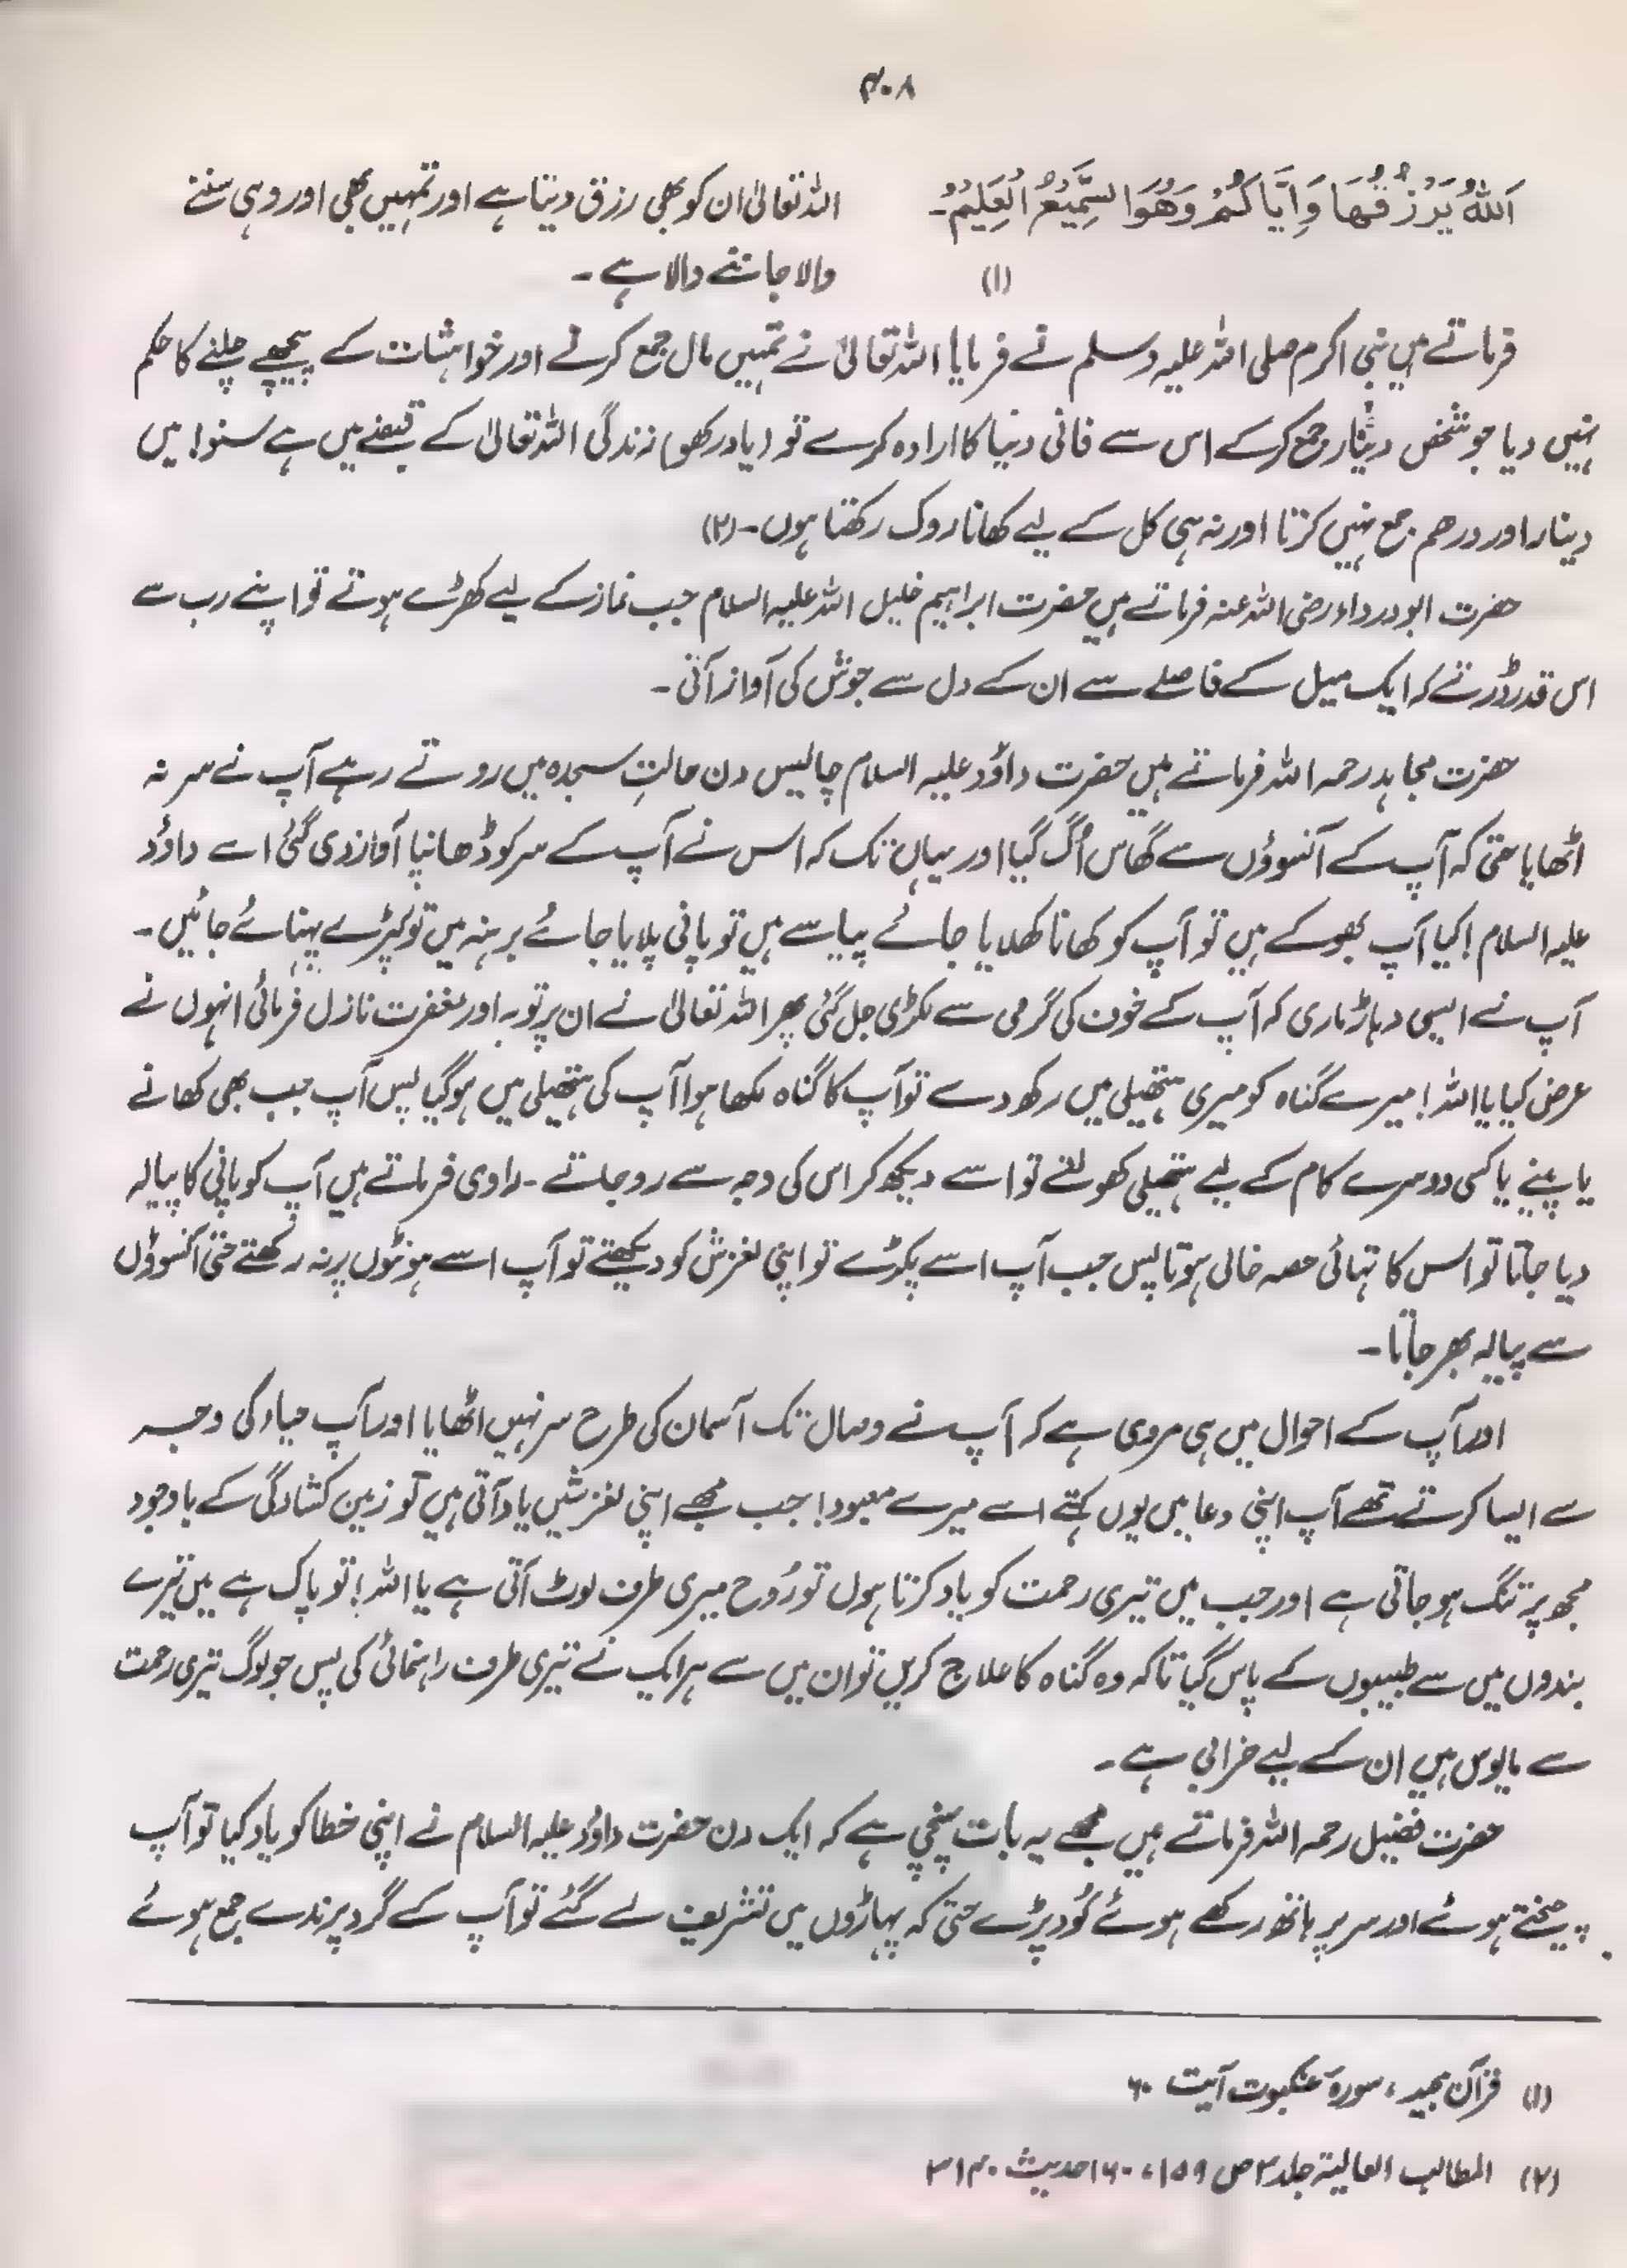 ۴۰۸
اَللهُ يَرْزُقُهَا وَاِيَّاكُمْ وَهُوَ السَّمِيْعُ الْعَلِيْمُ۔
(۱)
اللہ تعالیٰ ان کو بھی رزق دیتا ہے اور تمہیں بھی اور وہی سننے
والا جاننے والا ہے۔
فرماتے ہیں نبی اکرم صلی اللہ علیہ وسلم نے فرمایا اللہ تعالیٰ نے تمہیں مال جمع کرنے اور خواہشات کے پیچھے چلنے کا حکم
نہیں دیا جو شخص دینار جمع کرکے اس سے فانی دنیا کا ارادہ کرے تو (یاد رکھو) زندگی اللہ تعالیٰ کے قبضے میں ہے سنو! میں
دینار اور درھم جمع نہیں کرتا اور نہ ہی کل کے لیے کھانا روک رکھتا ہوں۔ (۲)
حضرت ابودرداء رضی اللہ عنہ فرماتے ہیں حضرت ابراہیم خلیل اللہ علیہ السلام جب نماز کے لیے کھڑے ہوتے تو اپنے رب سے
اس قدر ڈرتے کہ ایک میل کے فاصلے سے ان کے دل سے جوش کی آواز آتی۔
حضرت مجاہد رحمہ اللہ فرماتے ہیں حضرت داؤد علیہ السلام چالیس دن حالتِ سجدہ میں روتے رہے آپ نے سر نہ
اٹھایا حتیٰ کہ آپ کے آنسوؤں سے گھاس اُگ گیا اور یہاں تک کہ اس نے آپ کے سر کو ڈھانپا آواز دی گئی اے داؤد
علیہ السلام! کیا آپ بھوکے ہیں تو آپ کو کھانا کھلایا جائے پیاسے ہیں تو پانی پلایا جائے برہنہ ہیں تو کپڑے پہنائے جائیں۔
آپ نے ایسی دہاڑ ماری کہ آپ کے خون کی گرمی سے لکڑی جل گئی پھر اللہ تعالیٰ نے ان پر توبہ اور مغفرت نازل فرمائی انہوں نے
عرض کیا یا اللہ! میرے گناہ کو میری ہتھیلی میں رکھ دے تو آپ کا گناہ لکھا ہوا آپ کی ہتھیلی میں ہوگیا پس آپ جب بھی کھانے
یا پینے یا کسی دوسرے کام کے لیے ہتھیلی کھولتے تو اسے دیکھ کر اس کی وجہ سے رو جاتے۔ راوی فرماتے ہیں آپ کو پانی کا پیالہ
دیا جاتا تو اس کا تہائی حصہ خالی ہوتا پس جب آپ اسے پکڑتے تو اپنی لغزش کو دیکھتے تو آپ اسے ہونٹوں پر نہ رکھتے حتیٰ آنسوؤں
سے پیالہ بھر جاتا۔
اور آپ کے احوال میں ہی مروی ہے کہ آپ نے وصال تک آسمان کی طرح سر نہیں اٹھایا اور آپ حیاء کی وجہ
سے ایسا کرتے تھے آپ اپنی دعا میں یوں کہتے اے میرے معبود! جب مجھے اپنی لغزشیں یاد آتی ہیں تو زمین کشادگی کے باوجود
مجھ پر تنگ ہو جاتی ہے اور جب میں تیری رحمت کو یاد کرتا ہوں تو رُوح میری طرف لوٹ آتی ہے یا اللہ! تو پاک ہے میں تیرے
بندوں میں سے طبیبوں کے پاس گیا تاکہ وہ گناہ کا علاج کریں تو ان میں سے ہر ایک نے تیری طرف راہنمائی کی پس جو لوگ تیری رحمت
سے مایوس ہیں ان کے لیے خرابی ہے۔
حضرت فضیل رحمہ اللہ فرماتے ہیں مجھے یہ بات پہنچی ہے کہ ایک دن حضرت داؤد علیہ السلام نے اپنی خطا کو یاد کیا تو آپ
چیختے ہوئے اور سر پر ہاتھ رکھے ہوئے کُود پڑے حتیٰ کہ پہاڑوں میں تشریف لے گئے تو آپ کے گرد پرندے جمع ہوئے
(۱) قرآن مجید، سورۃ عنکبوت آیت ۶۰
(۲) المطالب العالیۃ جلد ۳ ص ۱۵۹، ۱۶۰ حدیث ۳۱۴۰